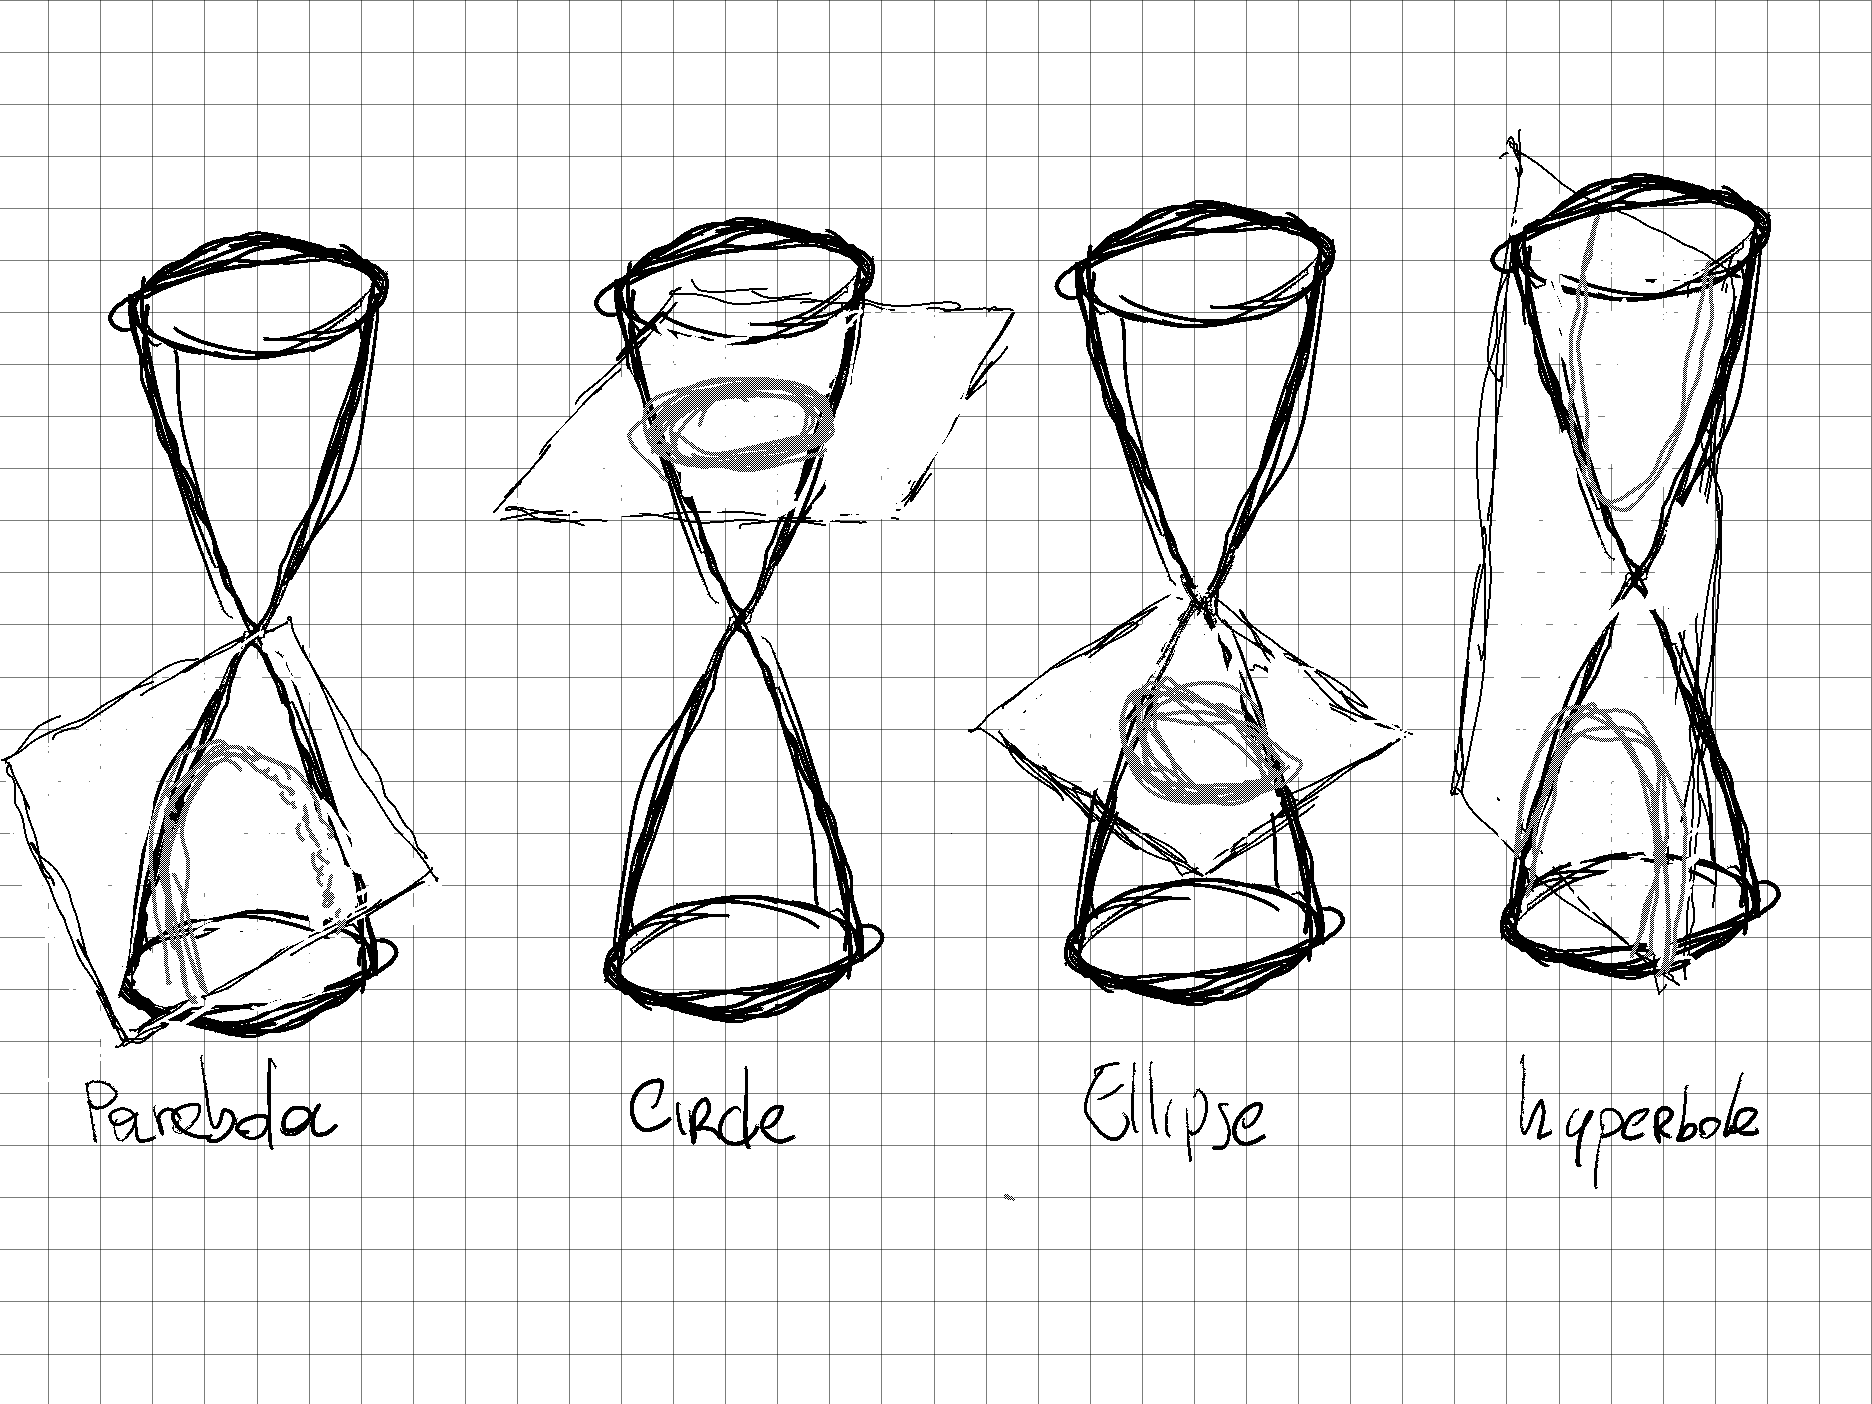 Parabola
Circle
Ellipse
hyperbole